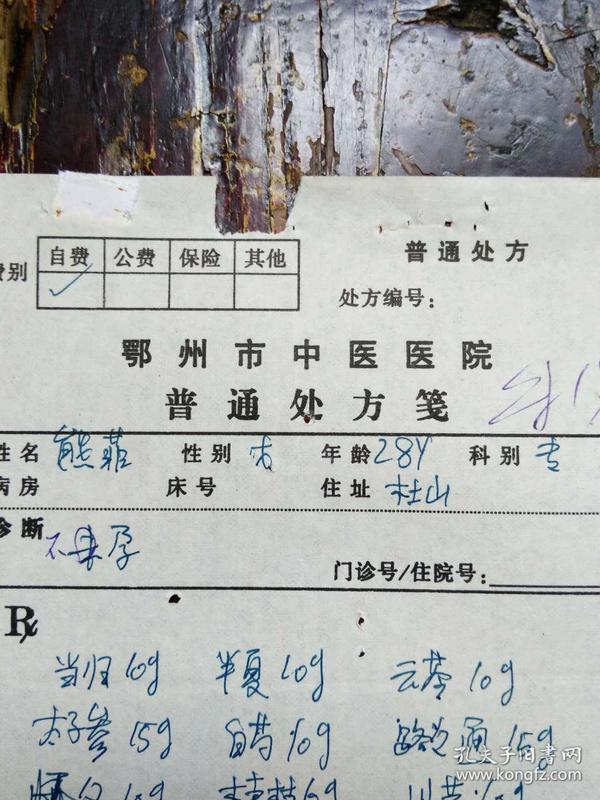 费别 自费 公费 保险 其他 普通处方
处方编号:
鄂州市中医医院
普通处方笺
姓名 熊菲 性别 女 年龄 28Y 科别 专
病房 床号 住址 杜山
诊断 不孕
门诊号/住院号:
R
当归 10g 半夏 10g 云苓 10g
太子参 15g 白芍 10g 路路通 15g
10g 桂枝 6g 川芎 10g
孔夫子旧书网
www.kongfz.com